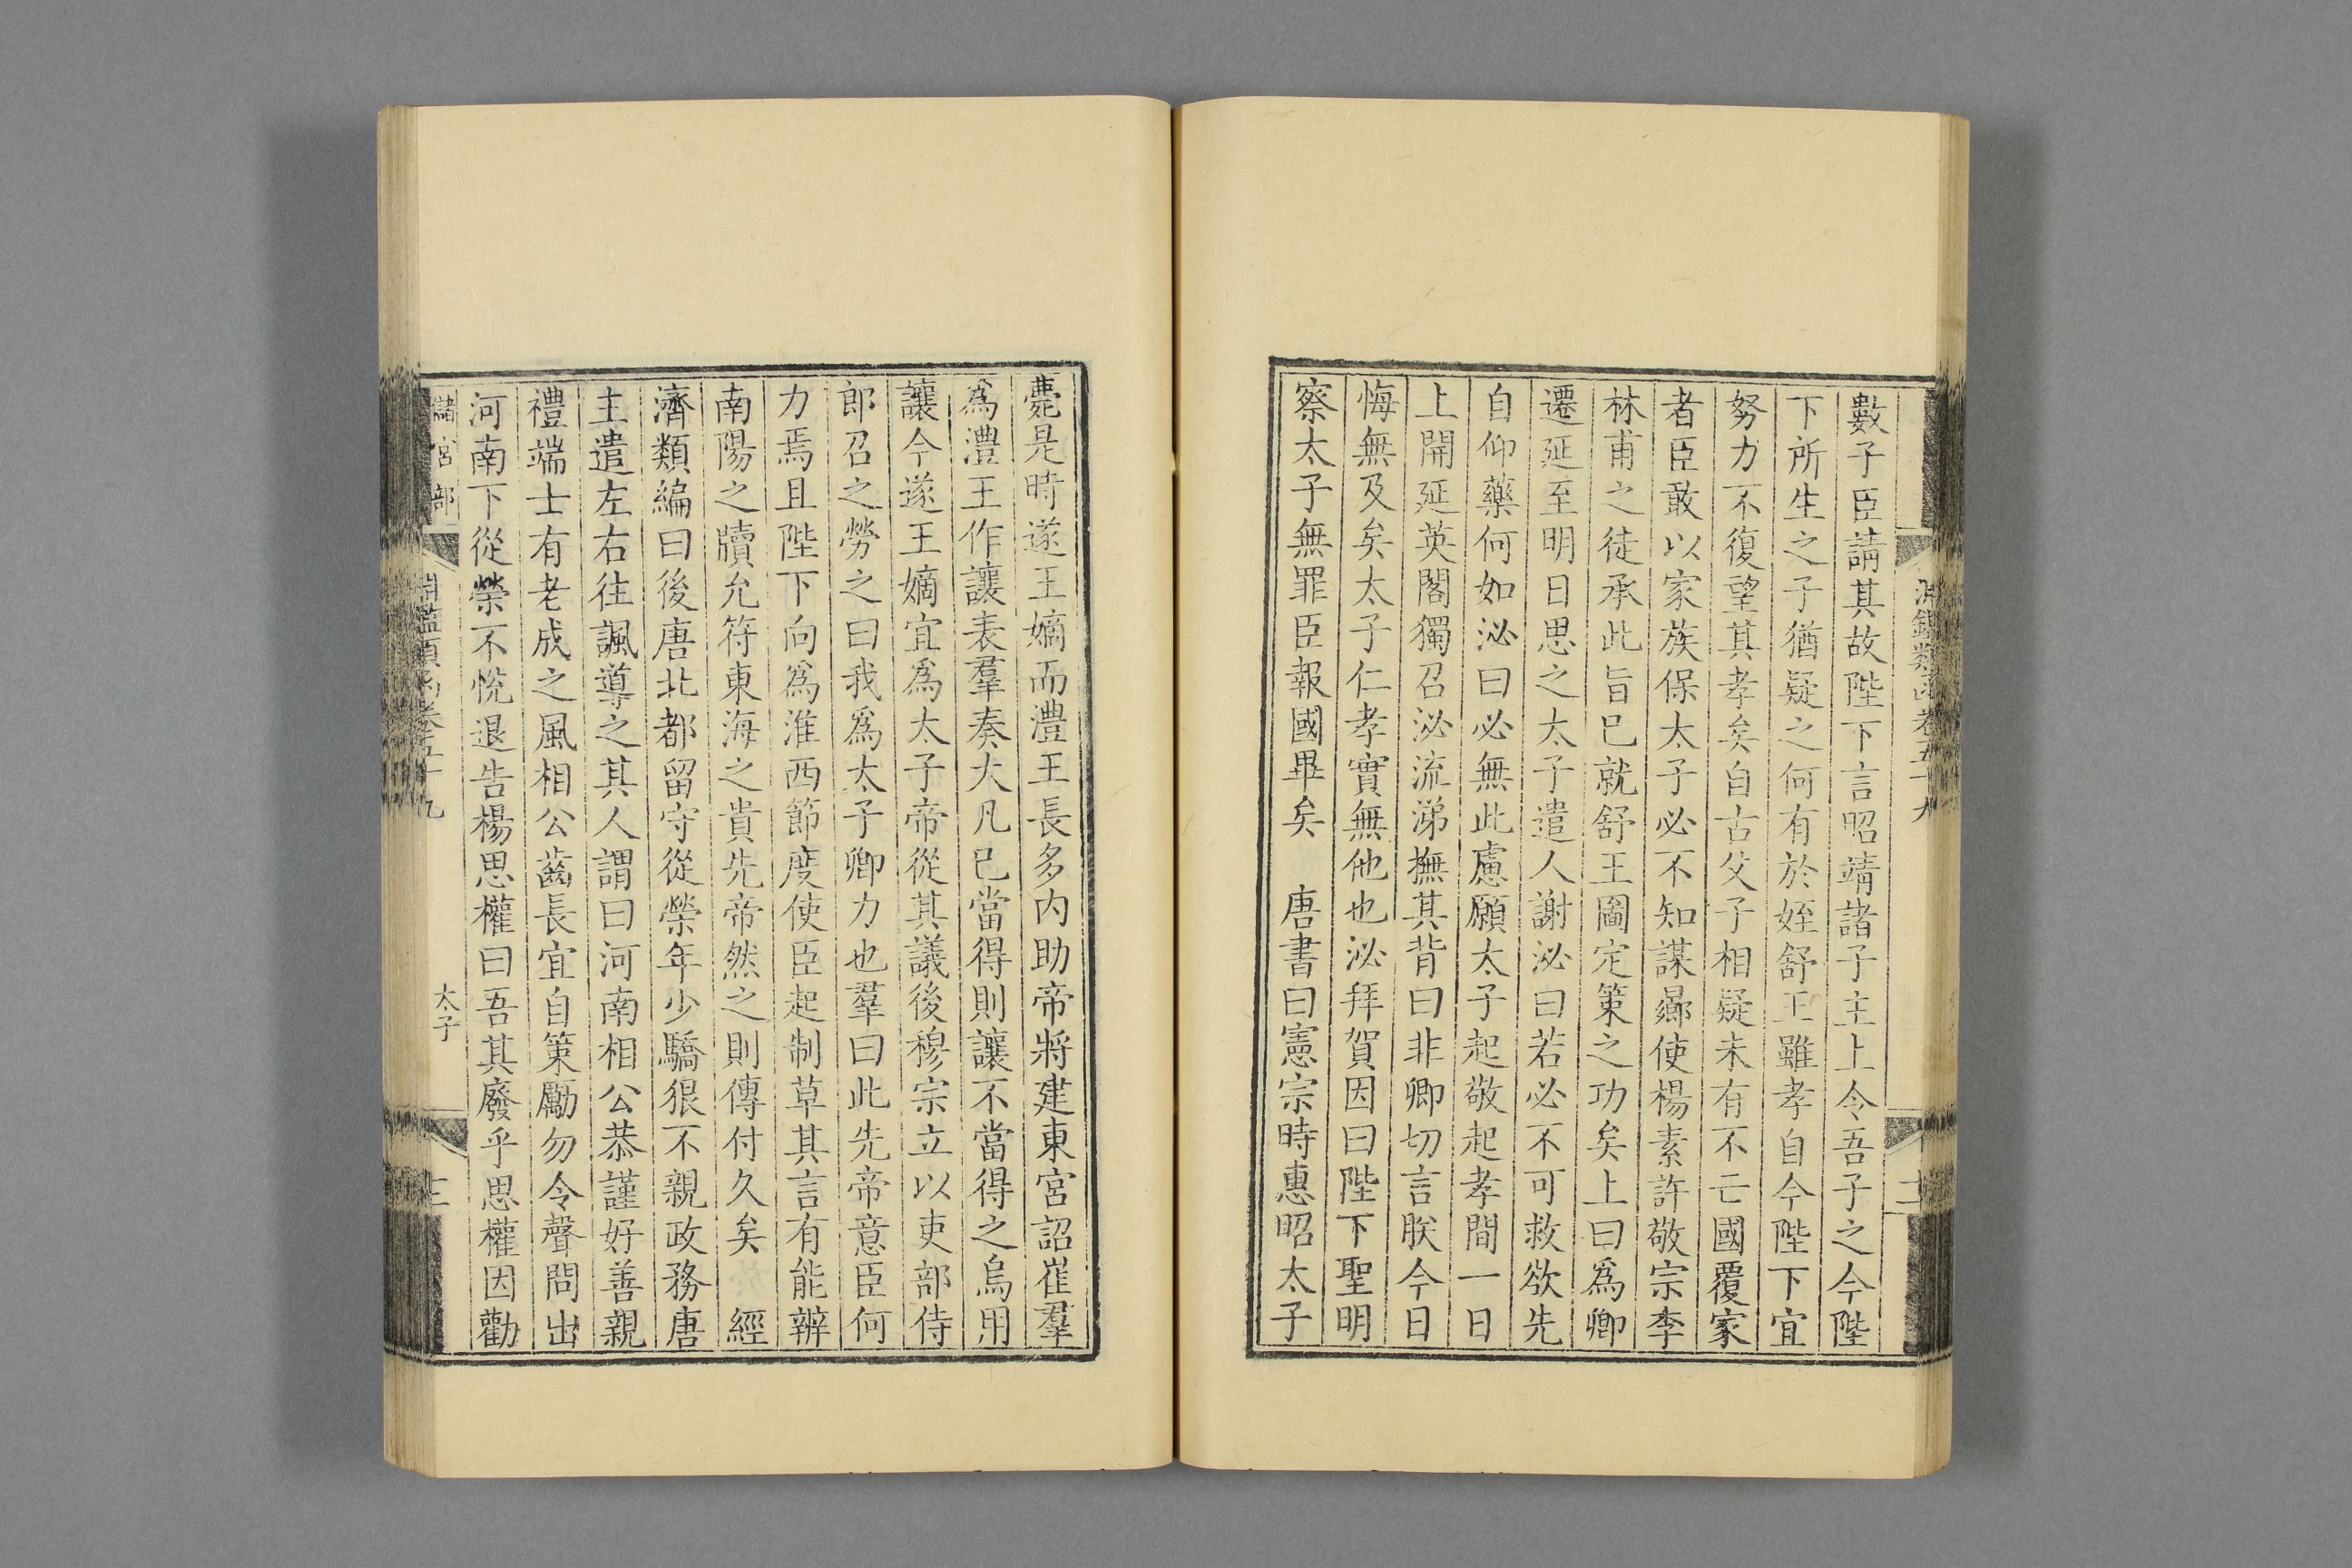 數子臣請其故陛下言昭靖諸子主上令吾子之今陛
下所生之子猶疑之何有於姪舒王雖孝自今陛下宜
努力不復望其孝矣自古父子相疑未有不亡國覆家
者臣敢以家族保太子必不知謀曏使楊素許敬宗李
林甫之徒承此旨已就舒王圖定策之功矣上曰爲卿
遷延至明日思之太子遣人謝泌曰若必不可救欲先
自仰藥何如泌曰必無此慮願太子起敬起孝間一日
上開延英閣獨召泌流涕撫其背曰非卿切言朕今日
悔無及矣太子仁孝實無他也泌拜賀因曰陛下聖明
察太子無罪臣報國畢矣　唐書曰憲宗時惠昭太子
薨是時遂王嫡而澧王長多內助帝將建東宮詔崔羣
爲澧王作讓表羣奏大凡已當得則讓不當得之烏用
讓今遂王嫡宜爲太子帝從其議後穆宗立以吏部侍
郎召之勞之曰我爲太子卿力也羣曰此先帝意臣何
力焉且陛下向爲淮西節度使臣起制草其言有能辨
南陽之牘允符東海之貴先帝然之則傳付久矣　經
濟類編曰後唐北都留守從榮年少驕狠不親政務唐
主遣左右往諷導之其人謂曰河南相公恭謹好善親
禮端士有老成之風相公齒長宜自策勵勿令聲問出
河南下從榮不悅退告楊思權曰吾其廢乎思權因勸
儲宮部
淵鑑類函卷五十九
太子